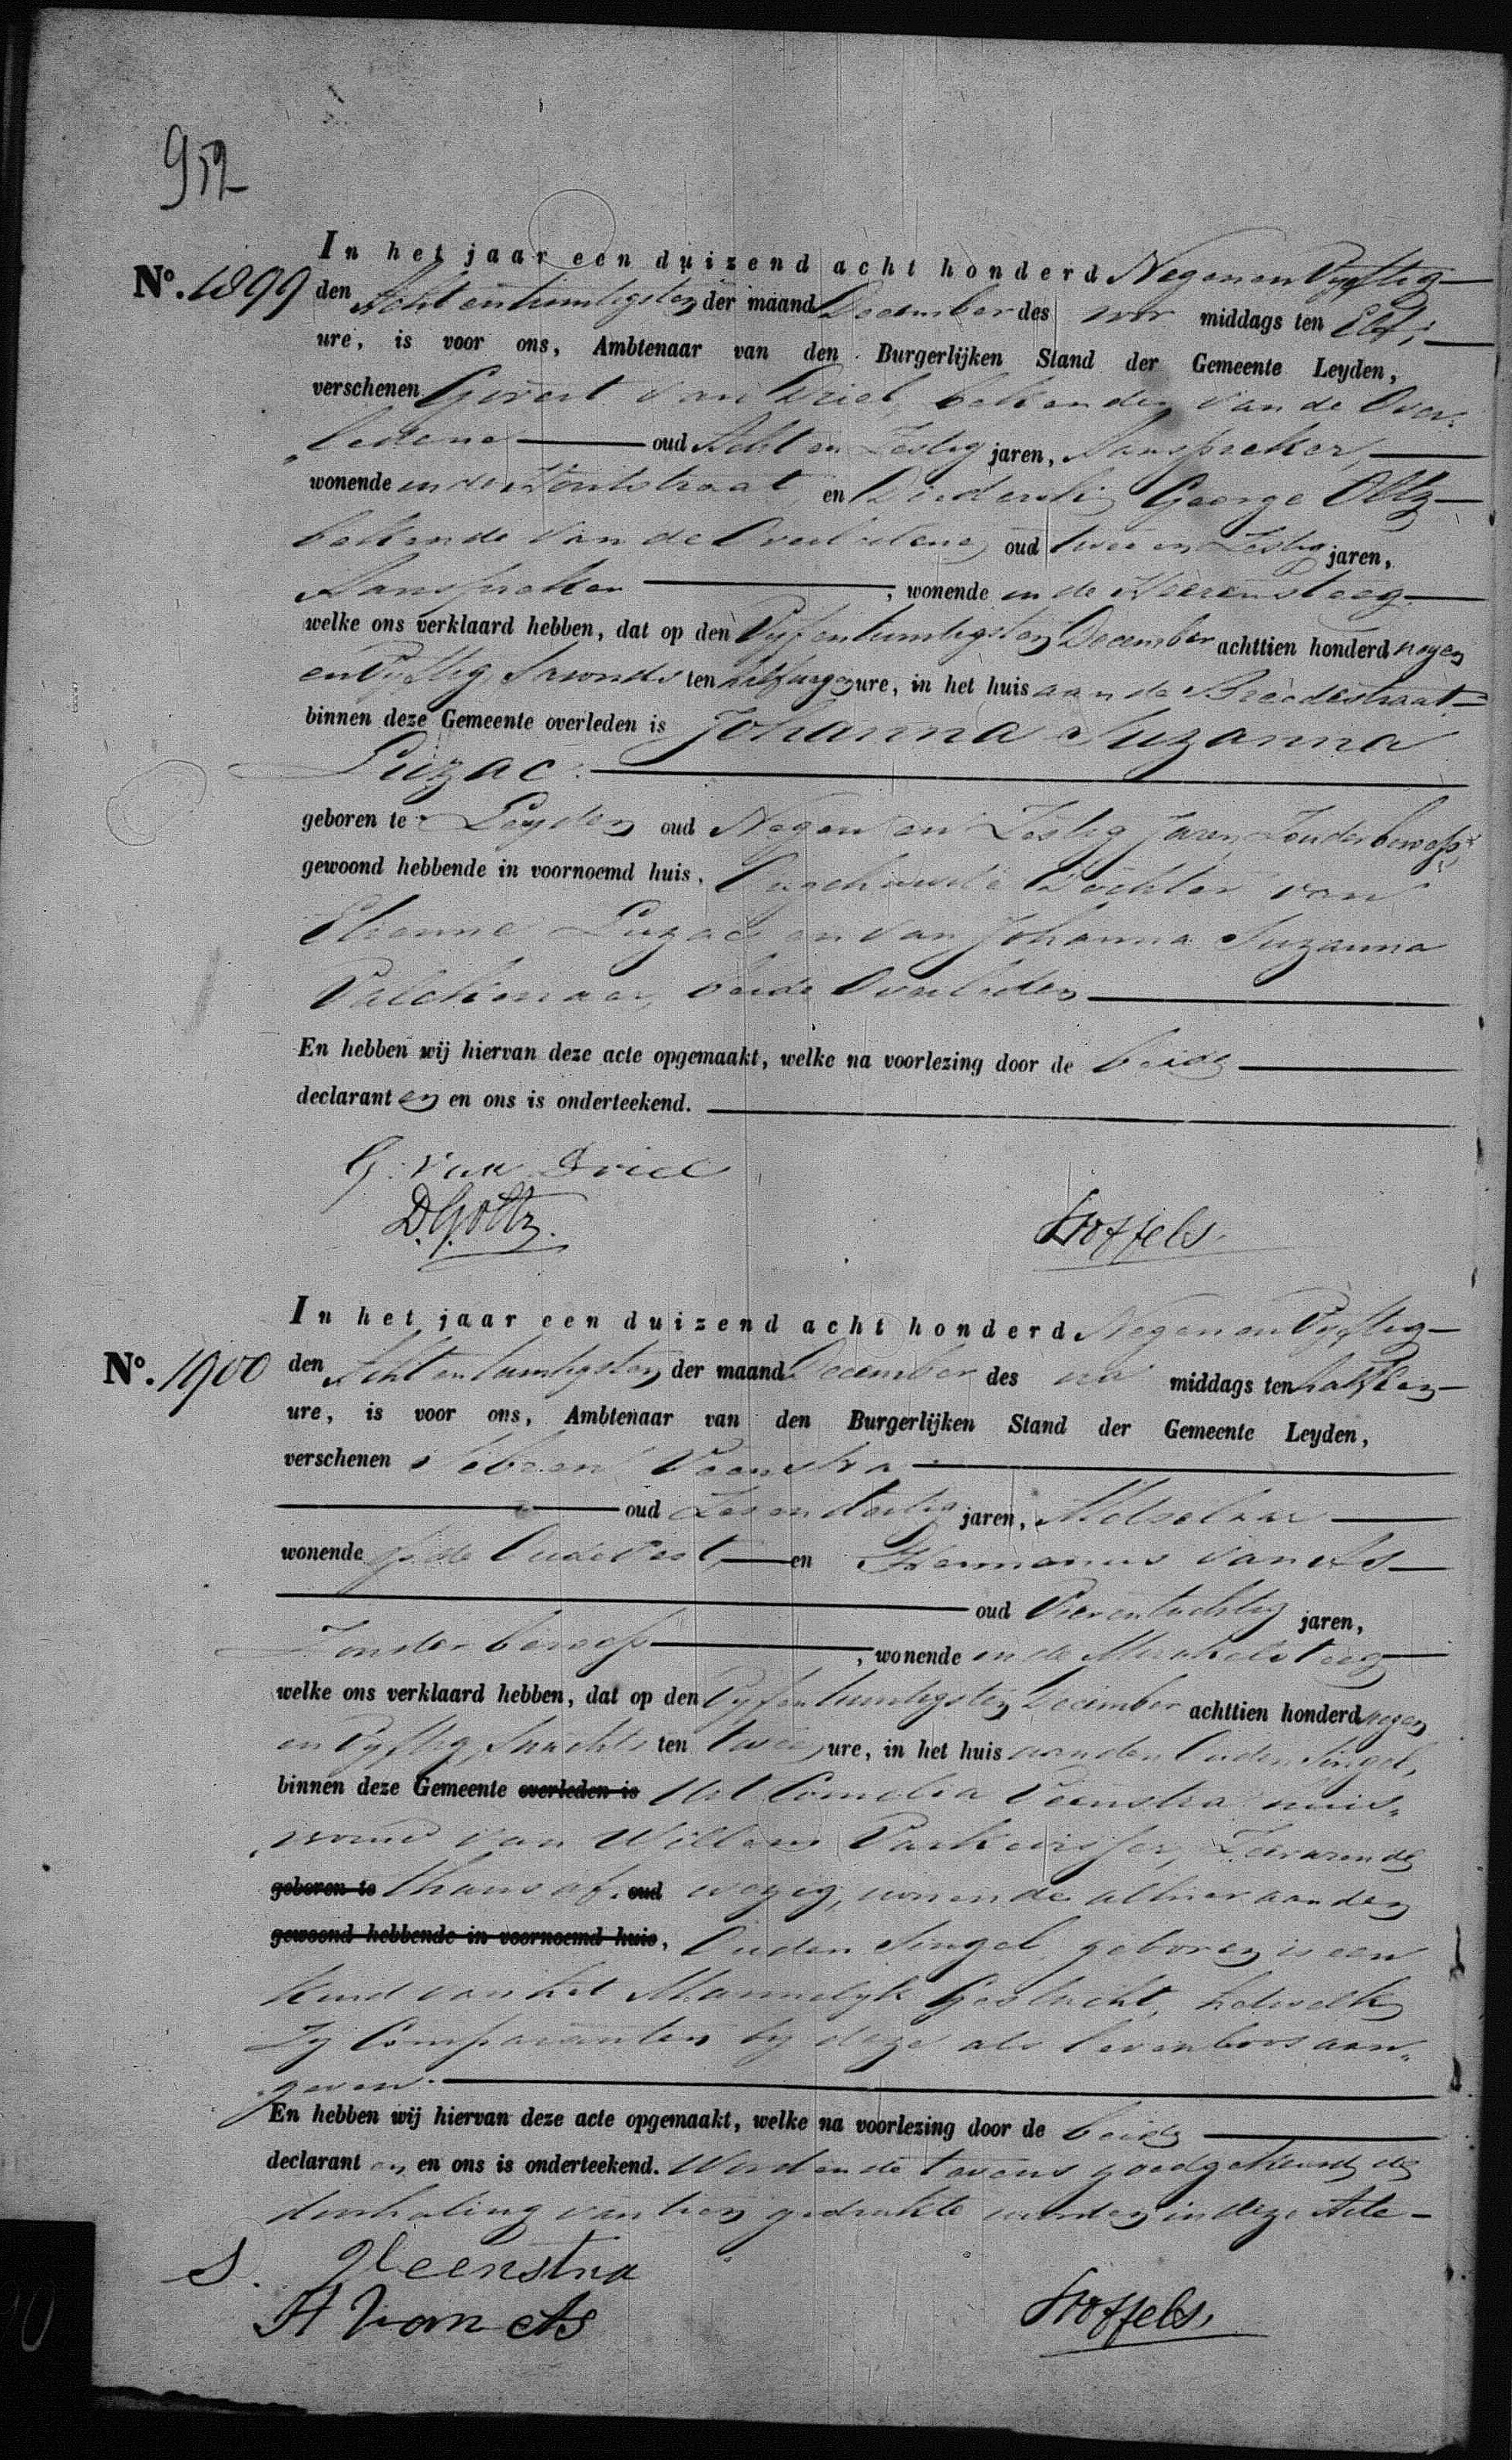 952
In het jaar een duizend acht honderd Negen en Vyftig
No. 1899 den Acht en twintigsten der maand December des voor middags ten Elf
ure, is voor ons, Ambtenaar van den Burgerlijken Stand der Gemeente Leyden,
verschenen Govert van Driel, bekende van de Over-
ledene oud Acht en Zestig jaren, Aanspreker,
wonende in de Houtstraat, en Diederik George Oltz
bekende van de Overledene, oud twee en Zestig jaren,
Aanspreker, wonende in de Heerensteeg
welke ons verklaard hebben, dat op den Vyf en twintigsten December achttien honderd negen
en Vyftig, savonds ten half negen ure, in het huis aan de Breedestraat
binnen deze Gemeente overleden is Johanna Suzanna
Luzac.
geboren te Leyden oud Negen en Zestig Jaren, Zonder beroep,
gewoond hebbende in voornoemd huis, Ongehuwde Dochter van
Etienne Luzac en van Johanna Suzanna
Valckenaer, beide Overleden
En hebben wij hiervan deze acte opgemaakt, welke na voorlezing door de beide
declarant en en ons is onderteekend.
G. van Driel
D. G. Oltz. Stoffels.
In het jaar een duizend acht honderd Negen en Vyftig
No. 1900 den Acht en twintigsten der maand December des na middags ten half Een
ure, is voor ons, Ambtenaar van den Burgerlijken Stand der Gemeente Leyden,
verschenen Veenstra
oud Zes en dertig jaren, Metselaar
wonende op de Oude Vest, en Hermanus van As
oud Vier en tachtig jaren,
Zonder beroep, wonende in de Mirakelsteeg
welke ons verklaard hebben, dat op den Vyf en twintigsten December achttien honderd negen
en Vyftig, snachts ten twee ure, in het huis aan den Ouden Singel,
binnen deze Gemeente overleden is Uit Cornelia Veenstra huis-
vrouw van Willem Parkevisser, Zeevarende
geboren te thans af- oud wezig, wonende alhier aan den
gewoond hebbende in voornoemd huis, Ouden Singel, geboren is een
kind van het Mannelyk Geslacht, hetwelk
Zy Comparanten by deze als levenloos aan-
geven.
En hebben wij hiervan deze acte opgemaakt, welke na voorlezing door de beide
declarant en en ons is onderteekend. Wordende tevens goedgekeurd de
doorhaling van tien gedrukte woorden in deze Acte
S. Veenstra
H van As Stoffels.